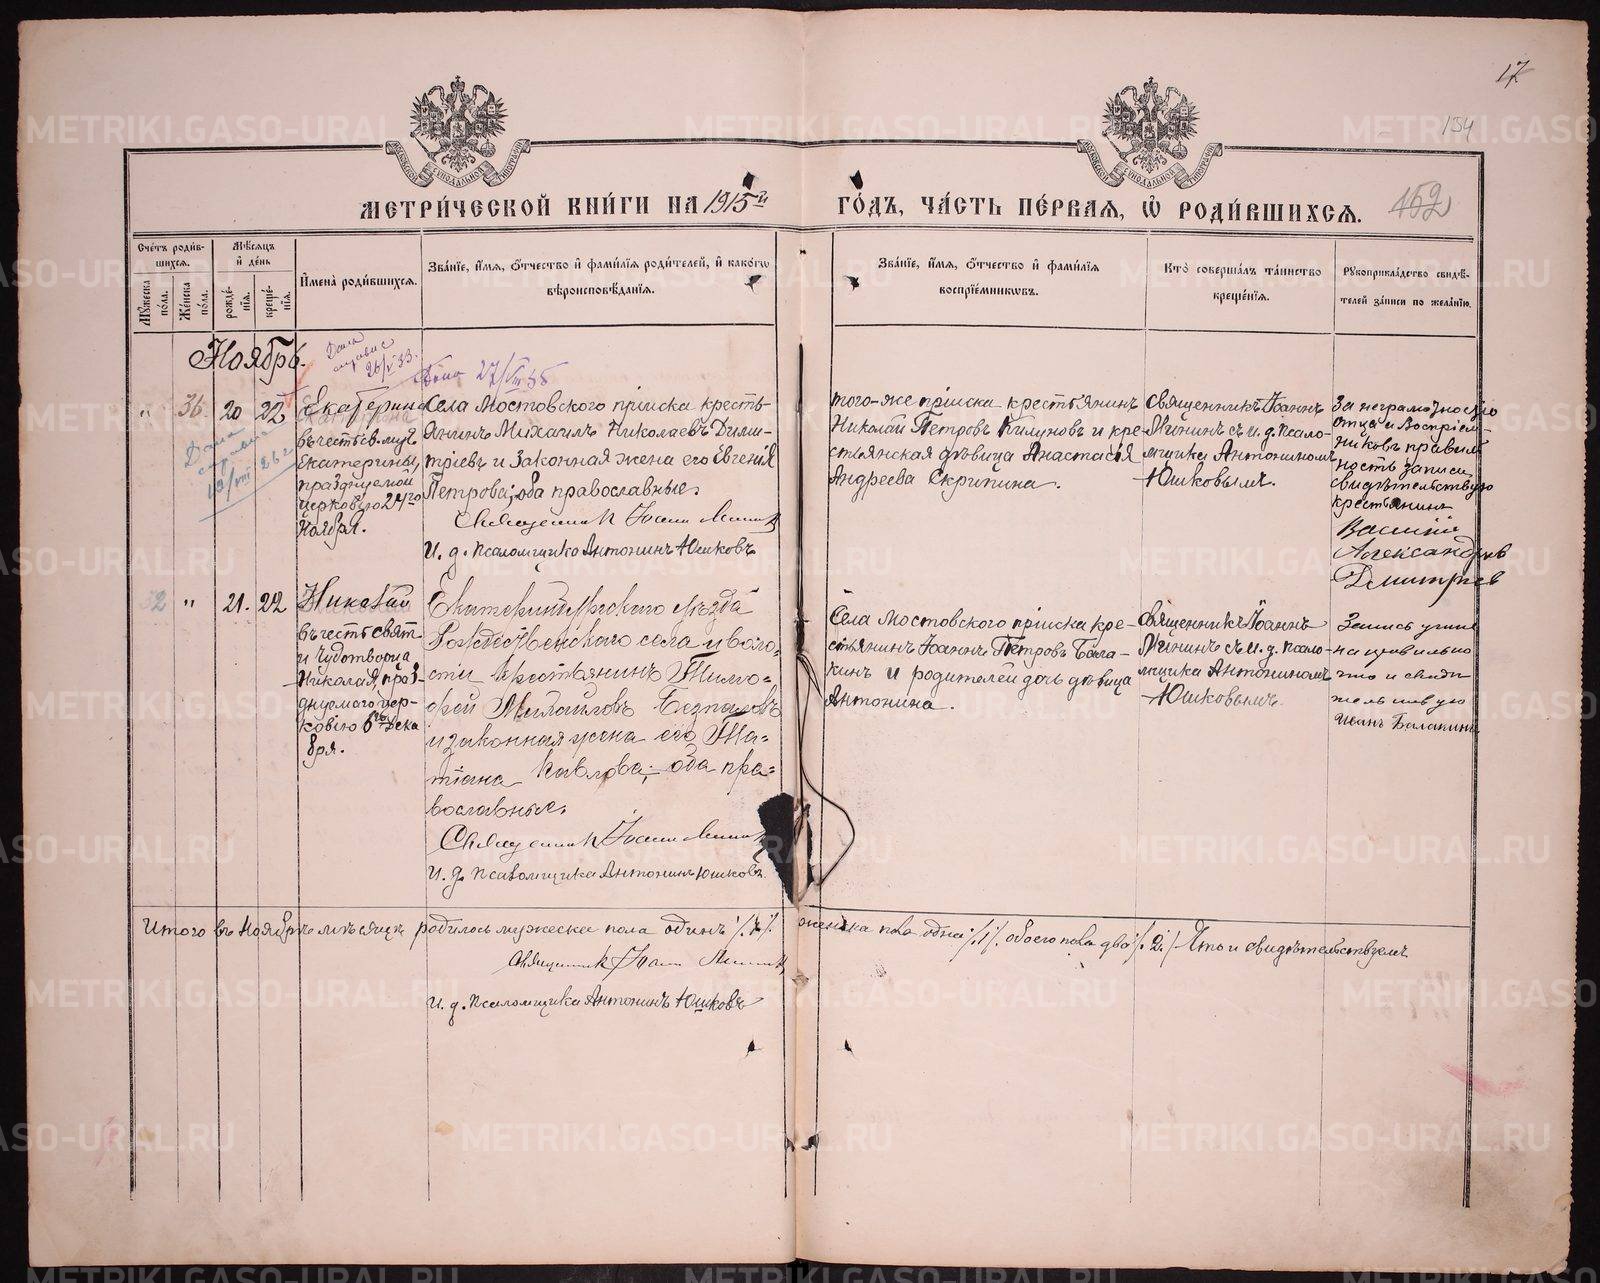 17
154
152
МЕТРИ́ЧЕСКОЙ КНИ́ГИ НА 1915й ГО́ДЪ, ЧА́СТЬ ПЕ́РВАЯ, Ѿ РОДИ́ВШИХСЯ.
Сче́тъ роди́в-
шихся.
Му́жеска по́ла.
Же́нска по́ла.
Мѣ́сяцъ
и де́нь
рожде́-
нія.
креще́-
нія.
Имена̀ роди́вшихся.
Зва́ніе, и́мя, о́тчество и фами́лія роди́телей, и како́гѡ
вѣроисповѣ́данія.
Зва́ніе, и́мя, о́тчество и фами́лія
воспріе́мникѡвъ.
Кто̀ соверша́лъ та́инство
креще́нія.
Рукоприкла́дство свидѣ́-
телей за́писи по жела́нію.
Ноябрь.
Дана
справка
26/V 33.
Дана 27/VIII 35
Дана
справка
13/VIII 26 г
" 36. 20 22
Екатерина
въ честь св. муч.
Екатерины,
празднуемой
церковію 24го
Ноября.
Села Мостовского пріиска кресть-
янинъ Михаилъ Николаевъ Дими-
тріевъ и законная жена его Евгенія
Петрова; оба православные.
Священникъ Іоаннъ Мининъ
И. д. псаломщика Антонинъ Юшковъ
того-же пріиска крестьянинъ
Николай Петровъ и кре-
стьянская дѣвица Анастасія
Андреева Скрипина.
Священникъ Іоаннъ
Мининъ съ и. д. псало-
мщика Антониномъ
Юшковымъ.
За неграмотностію
отца и воспріем-
никовъ правиль-
ность записи
свидѣтельствую
крестьянинъ
Василій
Александров
Дмитриев
32 " 21. 22
Николай
въ честь свят.
и Чудотворца
Николая, праз-
днуемаго цер-
ковію 6го Дека
бря.
Екатеринбургскаго уѣзда
Рождественского села и воло-
сти крестьянинъ Тимо-
фей Михайловъ Безпаловъ
и законная жена его Та-
тіана Павлова; оба пра-
вославные.
Священникъ Іоаннъ Мининъ
И. д. псаломщика Антонинъ Юшковъ.
Села Мостовского пріиска кре-
стьянинъ Іоаннъ Петровъ Бала-
кинъ и родителей дочь дѣвица
Антонина.
Священникъ Іоаннъ
Мининъ съ и. д. псало-
мщика Антониномъ
Юшковымъ.
Запись учине
на правильно
что и свиде
тельствую
Иванъ Балакинъ
Итого въ Ноябрѣ мѣсяцѣ родилось мужеска пола одинъ /.1./. женска пола одна /.1./. обоего пола два /.2./ Что и свидѣтельствуемъ
Священникъ Іоаннъ Мининъ
И. д. псаломщика Антонинъ Юшковъ
METRIKI.GASO-URAL.RU